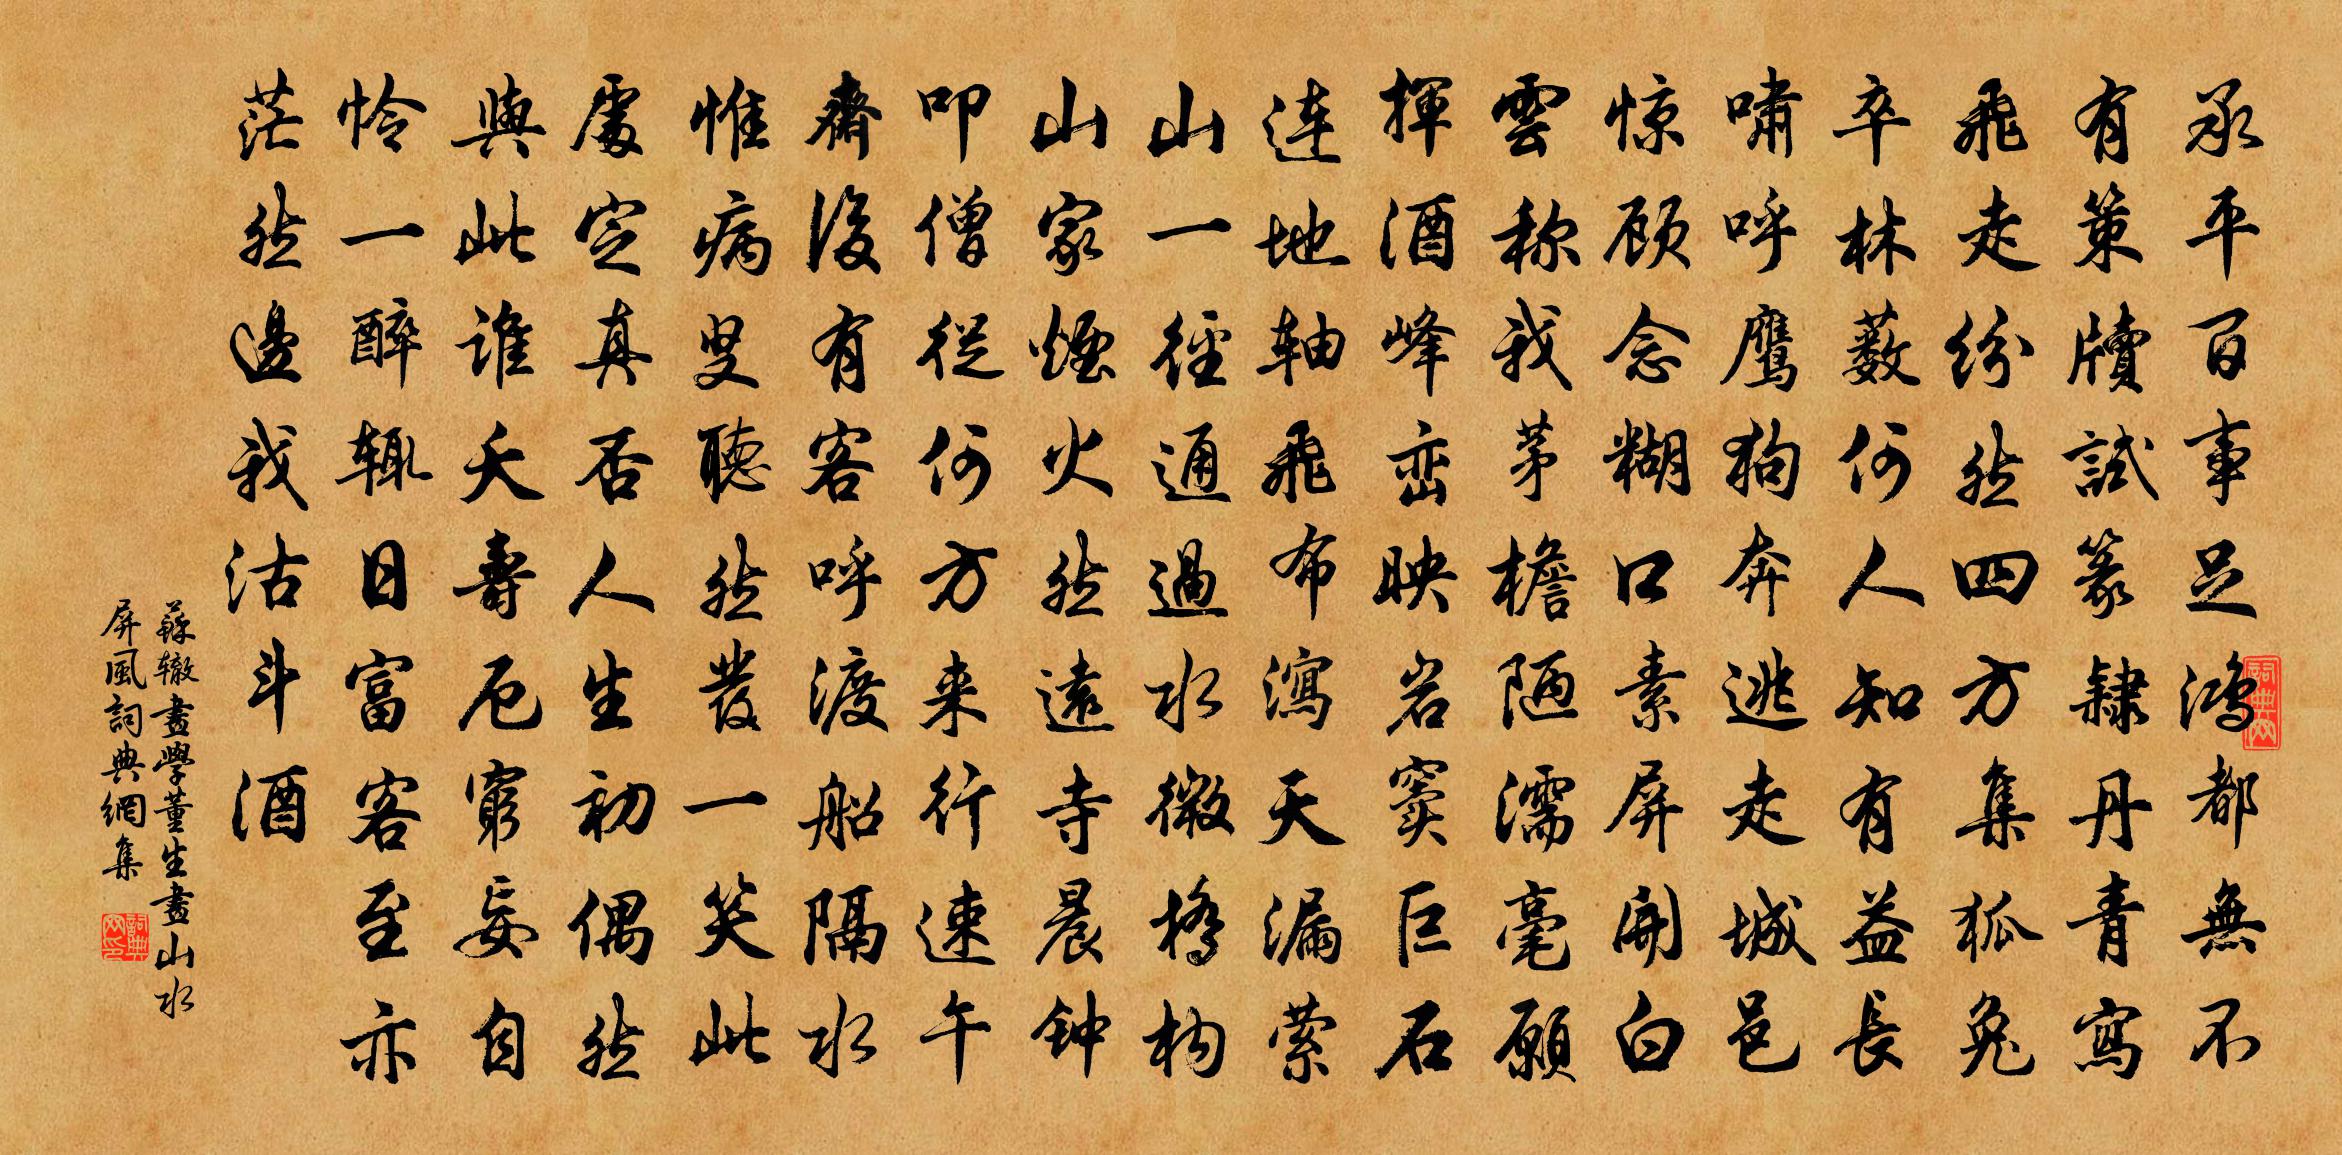 承平百事足鴻都無不
有策牘試篆隸丹青寫
飛走紛然四方集狐兔
卒林薮何人知有益長
嘯呼鹰狗奔逃走城邑
惊顾念糊口素屏開白
雲称我茅檐陋濡毫願
揮酒峰峦映岩窦巨石
连地轴飛布瀉天漏萦
山一徑通過水微橋构
山家煙火然遠寺晨钟
叩僧従何方来行速午
齋後有客呼渡船隔水
惟病叟聽然發一笑此
處定真否人生初偶然
與此谁夭壽厄窮妄自
怜一醉辄日富客至亦
茫然邊我沽斗酒
蘇辙畫學董生畫山水
屏風詞典網集